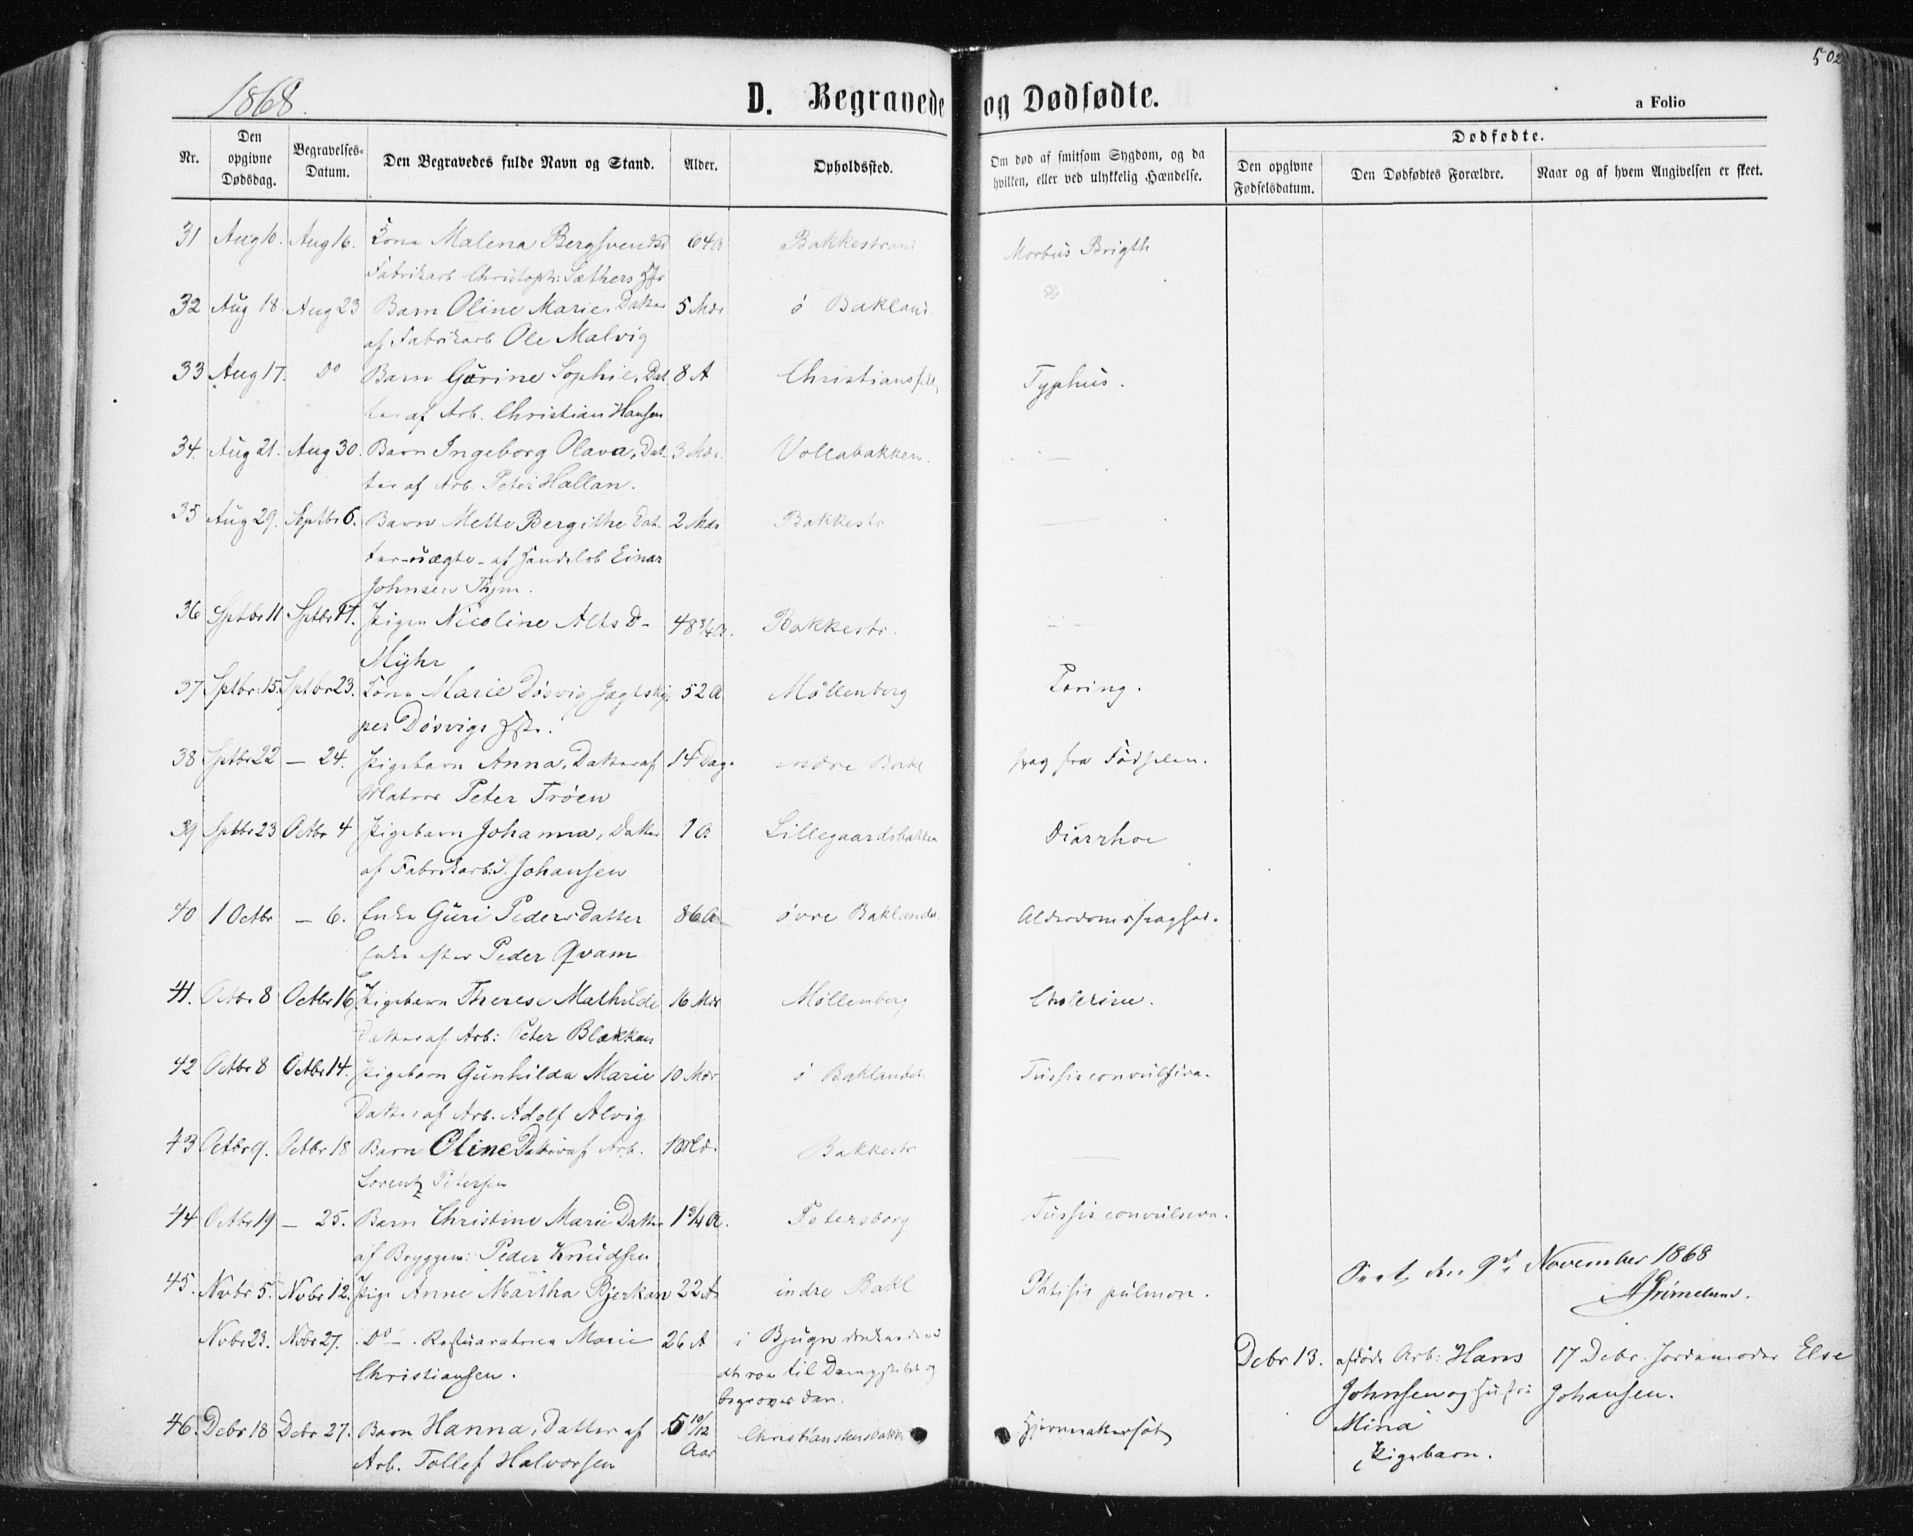 502
1868.
D. Begravede og Dødfødte.
a Folio
Nr.
Den opgivne Dødsdag.
Begravelses-Datum.
Den Begravedes fulde Navn og Stand.
Alder.
Opholdssted.
Om død af smitsom Sygdom, og da hvilken, eller ved ulykkelig Hændelse.
Dødfødte.
Den opgivne Fødselsdatum.
Den Dødfødtes Forældre.
Naar og af hvem Angivelsen er skeet.
31 Aug 10. Aug 16. Kone Malena Bergsvendsd 64 A Bakkestrand Morbus Brigth
Fabrikarb Christoph: Sæthers
32 Aug 18. Aug 23 Barn Oline Marie, Datter 5 Mdr ø Bakland.
af Fabrikarb Ole Malvig
33 Aug 17. Do Barn Gurine Sophie, Dat 8 A Christiansfeldt Typhus.
ter af Arb. Christian Hansen
34. Aug 21. Aug 30. Barn Ingeborg Olava, Dat 3 Mdr. Vollabakken.
ter af Arb. Peter Hallan.
35 Aug 29. Septbr 6. Barn Mette Bergithe Dat 2 Mdr Bakkestr
ter - uægte - af Handelsb Einar
Johnsen Thym.
36 Sptbr 11 Sptbr 17. Pigen Nicoline Alts D- 48 3/4 A. Bakkestr.
Myhr
37 Sptbr. 15. Sptbr 23. Kone Marie Døsvig Jagtskip 52 A Møllenberg Tæring.
per Døsvigs
38 Sptbr 22 - 24. Pigebarn Anna, Datter af 14 Dage indre Bakl svag fra Fødselen.
Matros Peter Trøen
39 Sptbr 23 Octbr 4 Pigebarn Johanna, Datter 1 A Lillegaardsbakken Diarrhoe
af Fabrikarb: J. Johansen
40 1 Octbr - 6. Enke Guri Pedersdatter 86 A øvre Baklandet Alderdomssvaghed.
Enke efter Peder Qvam
41. Octbr 8 Octbr 16 Pigebarn Therese Mathilde 16 Mdr Møllenberg Cholerine.
Datter af Arb: Peter Blækkan
42 Octbr 8 Octbr 14. Pigebarn Gunhilda Marie 10 Mdr ø Baklandet Tussis convulsiva.
Datter af Arb. Adolf Alvig
43 Octbr 9. Octbr 18 Barn Oline Datter af Arb. Bakkestr
Lorentz Petersen
44 Octbr 19 - 25. Barn Christine Marie Datter 1 3/4 A. Petersborg Tussis convulsiva.
af Bryggem: Peder Knudsen
Seet, den 9de November 1868
45. Novbr 5. Novbr 12. Pige Anne Martha Bjerkan 22 A indre Bakl Phtisis pulmon.
A Grimelund.
Nobr 23. Nobr 27. Do - Marie 26 A i Bjugn
Christiansen. til Dampskibet og
begraves den.
Debr 13. afdøde Arb: Hans 17 Debr. Jordemoder Else
Johnsen og Hustru Johansen.
Mina
Pigebarn.
46. Debr 18 Debr 27. Barn Hanna, Datter af 5 10/12 Aar Christianstensbakk Hjernevattersot
Arb. Tollef Halvorsen